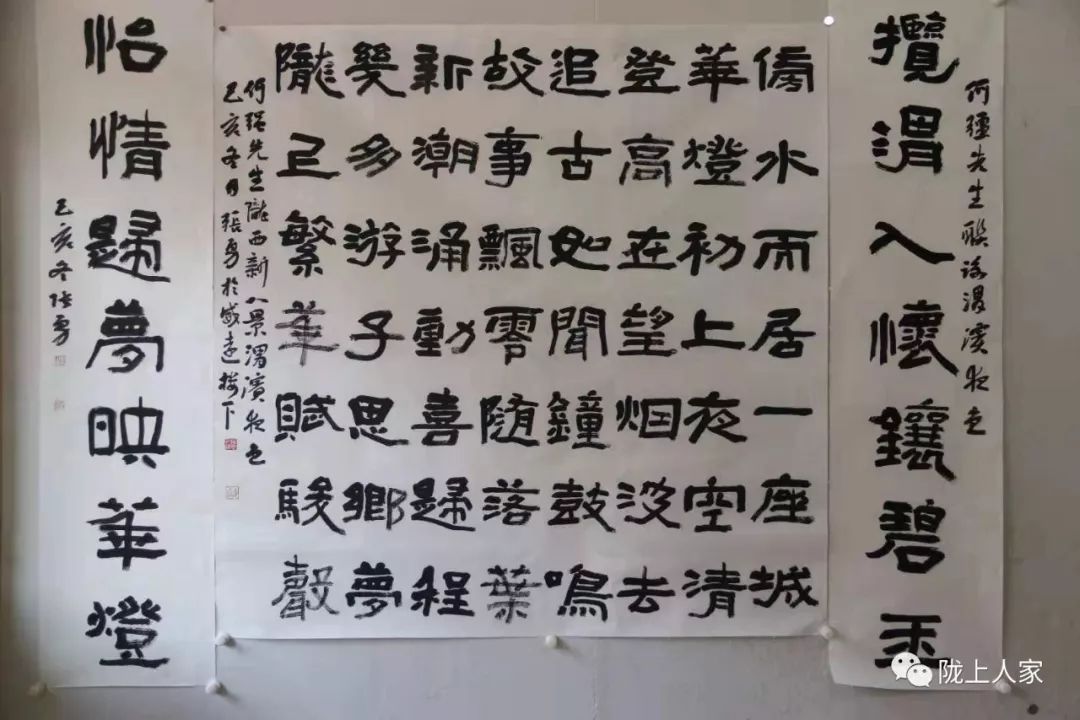 攬渭入懷鑲碧玉
何疆先生聯詠渭濱夜色
傍水而居一座城
華燈初上夜空清
登高在望烟沒去
追古如聞鐘鼓鳴
故事飄零隨落葉
新潮涌動喜歸程
幾多游子思鄉夢
隴已繁華賦駿聲
何疆先生隴西新八景渭濱夜色
己亥冬月張勇於威遠樓下
怡情歸夢映華燈
己亥冬張勇
陇上人家